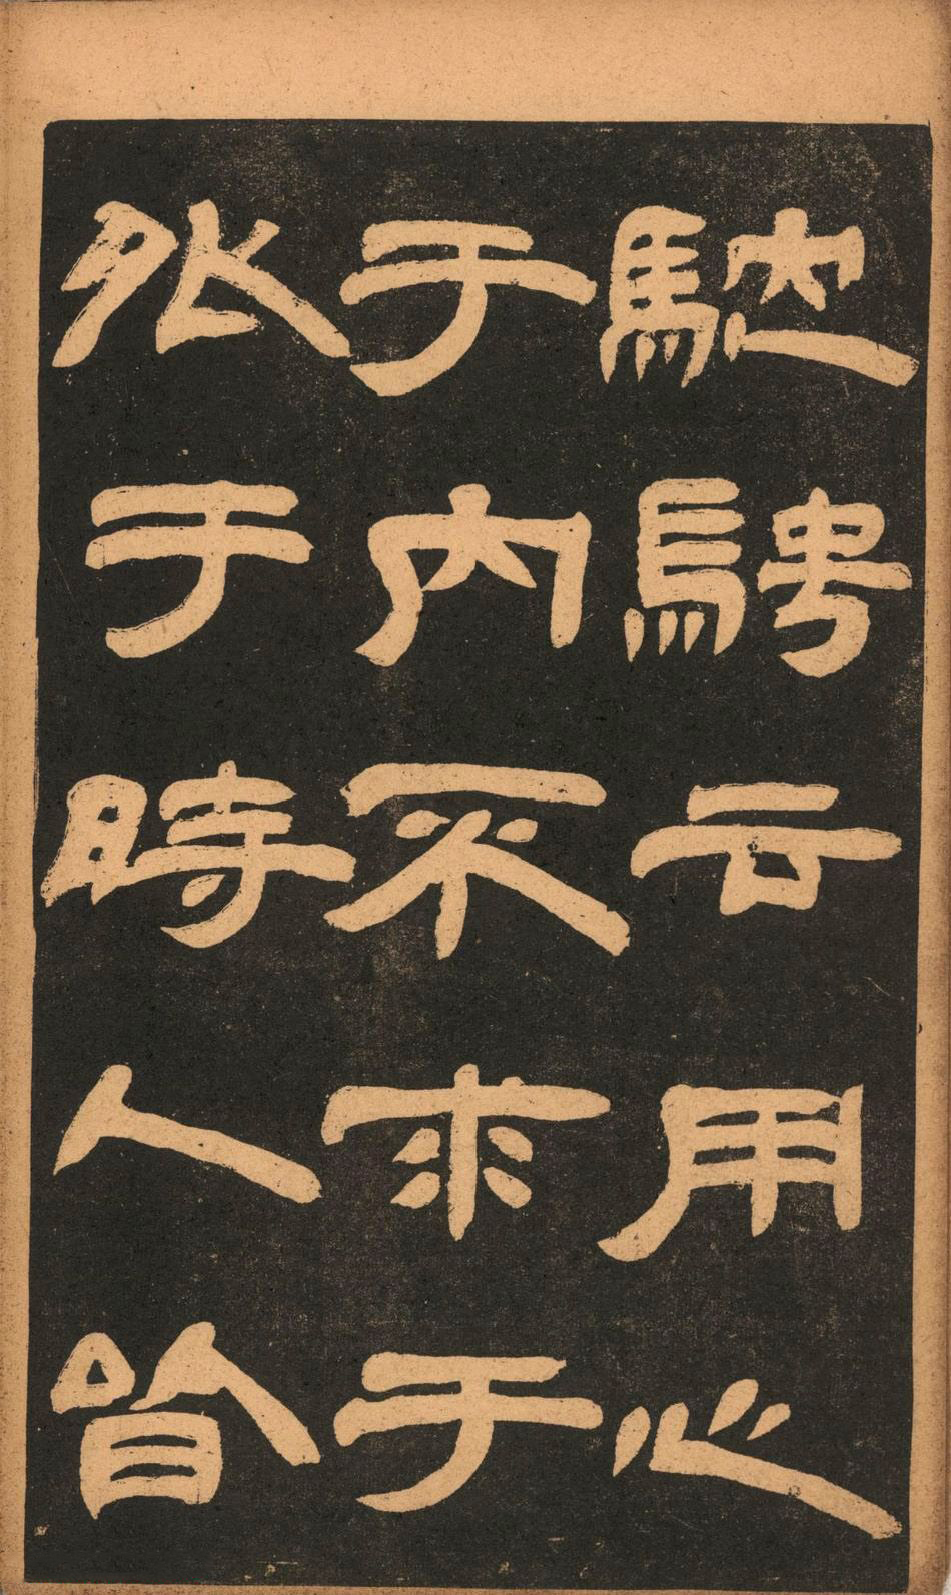 馳騁云用心
于內不求于
外于時人皆